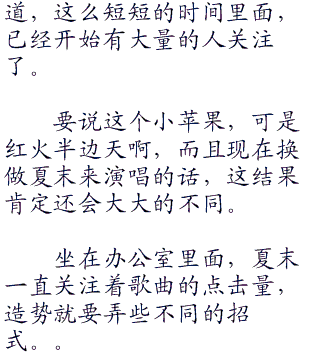 道，这么短短的时间里面，
已经开始有大量的人关注
了。
要说这个小苹果，可是
红火半边天啊，而且现在换
做夏末来演唱的话，这结果
肯定还会大大的不同。
坐在办公室里面，夏末
一直关注着歌曲的点击量，
造势就要弄些不同的招
式。。